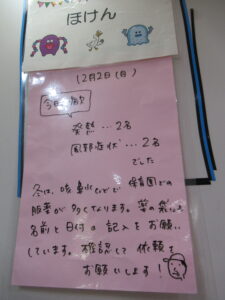 ほけん
12月2日(月)
今日の病欠
発熱…2名
風邪症状…2名
でした
冬は、咳、鼻水などで保育園での
服薬が多くなります。薬の袋に
名前と日付の記入をお願い
しています。確認して依頼を
お願いします!